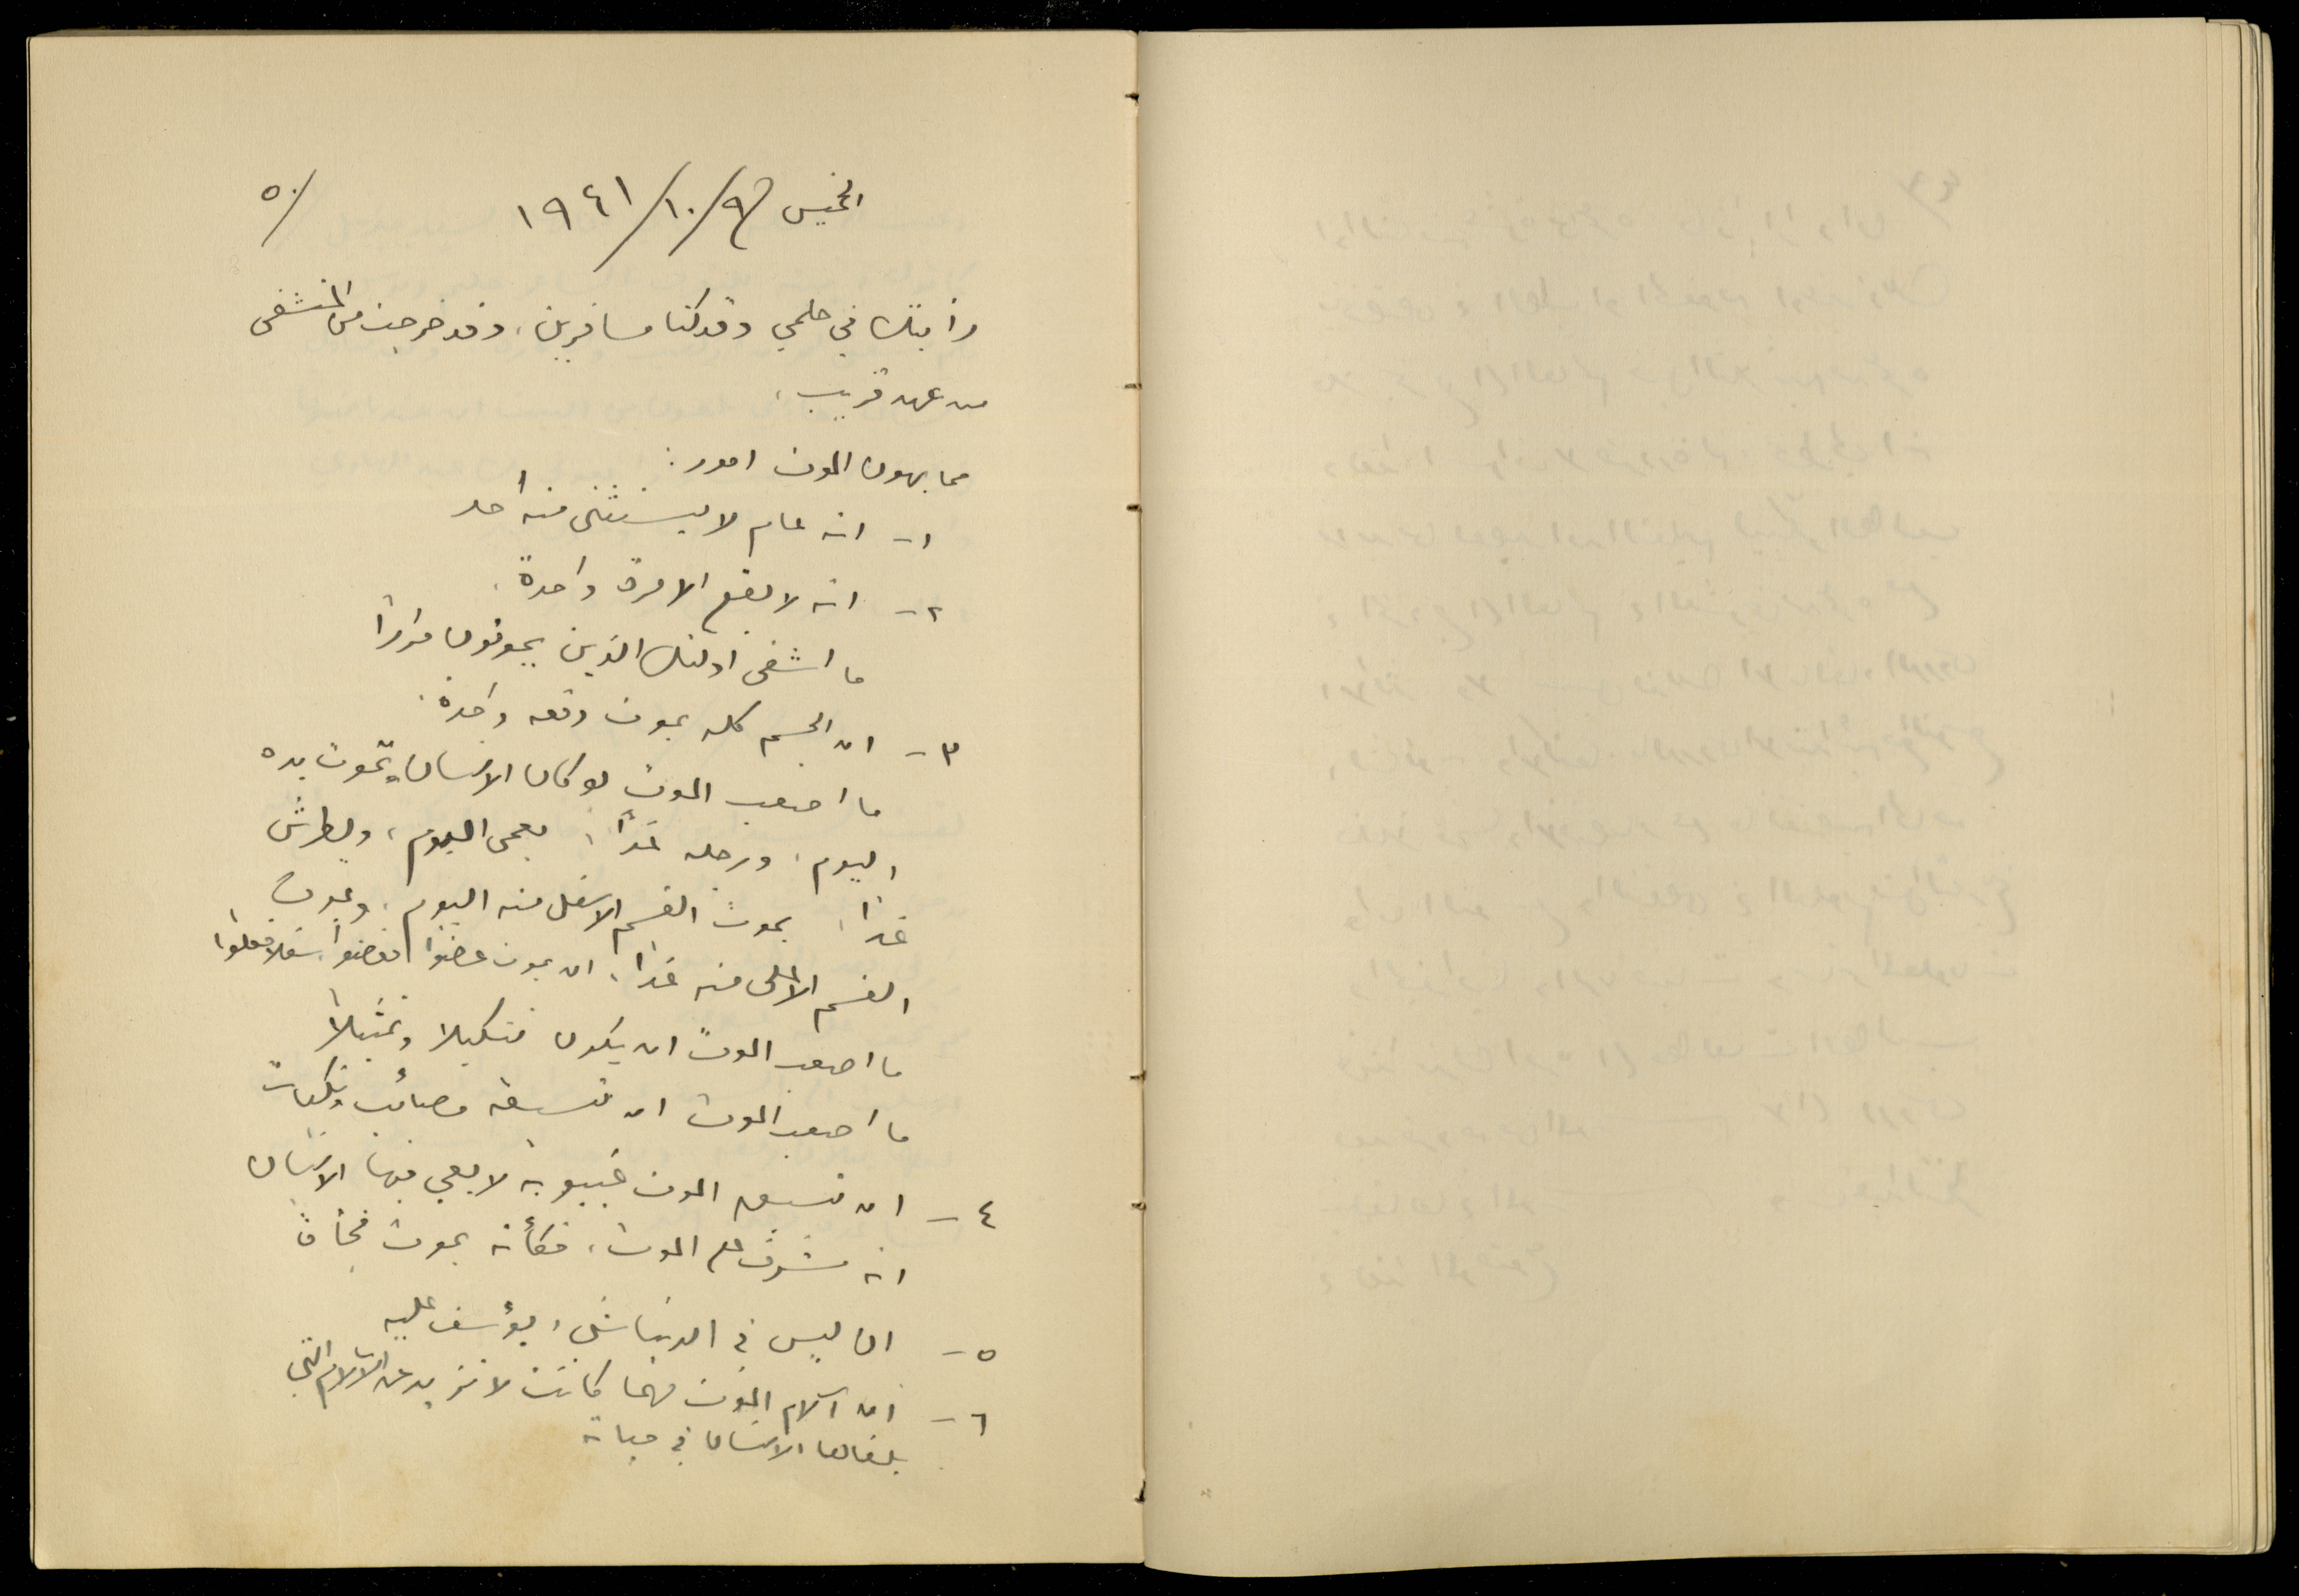 ٥٠/
الخميس ٩/١٠/١٩٤١
رأيتك في حلمي وقد كنا مسافرين، وقد خرجت من المستشفى
من عهد قريب،
مما يهون الموت امور:
١- انه عام لا يستثنى منه أحد
٢- انه لا يقع الا مرة واحدة.
ما اشقى اولئك الذين يموتون مراراً
٣- ان الجسم كله يموت دفعه واحدة.
ما اصعب الموت لو كان الانسان تموت يده
اليوم، ورجله غداً، يعمى اليوم، ويطرش
غداً، يموت القسم الاسفل منه اليوم، ويموت
القسم الاعلى منه غداً، ان يموت عضواً فعضواً
ما اصعب الموت ان يكون تنكيلا وتمثيلاً
ما اصعب الموت ان تسبقه مصائب ونكبات
٤- ان تسبق الموت غيبوبه لا يعي فيها الانسان
انه مشرف على الموت، فكأنه يموت فجأة
٥- ان ليس في الدنيا شيء يؤسف عليه
٦- ان آلام الموت مهما كانت لا تزيد عن الآلام التي
يلقاها الانسان في حياته